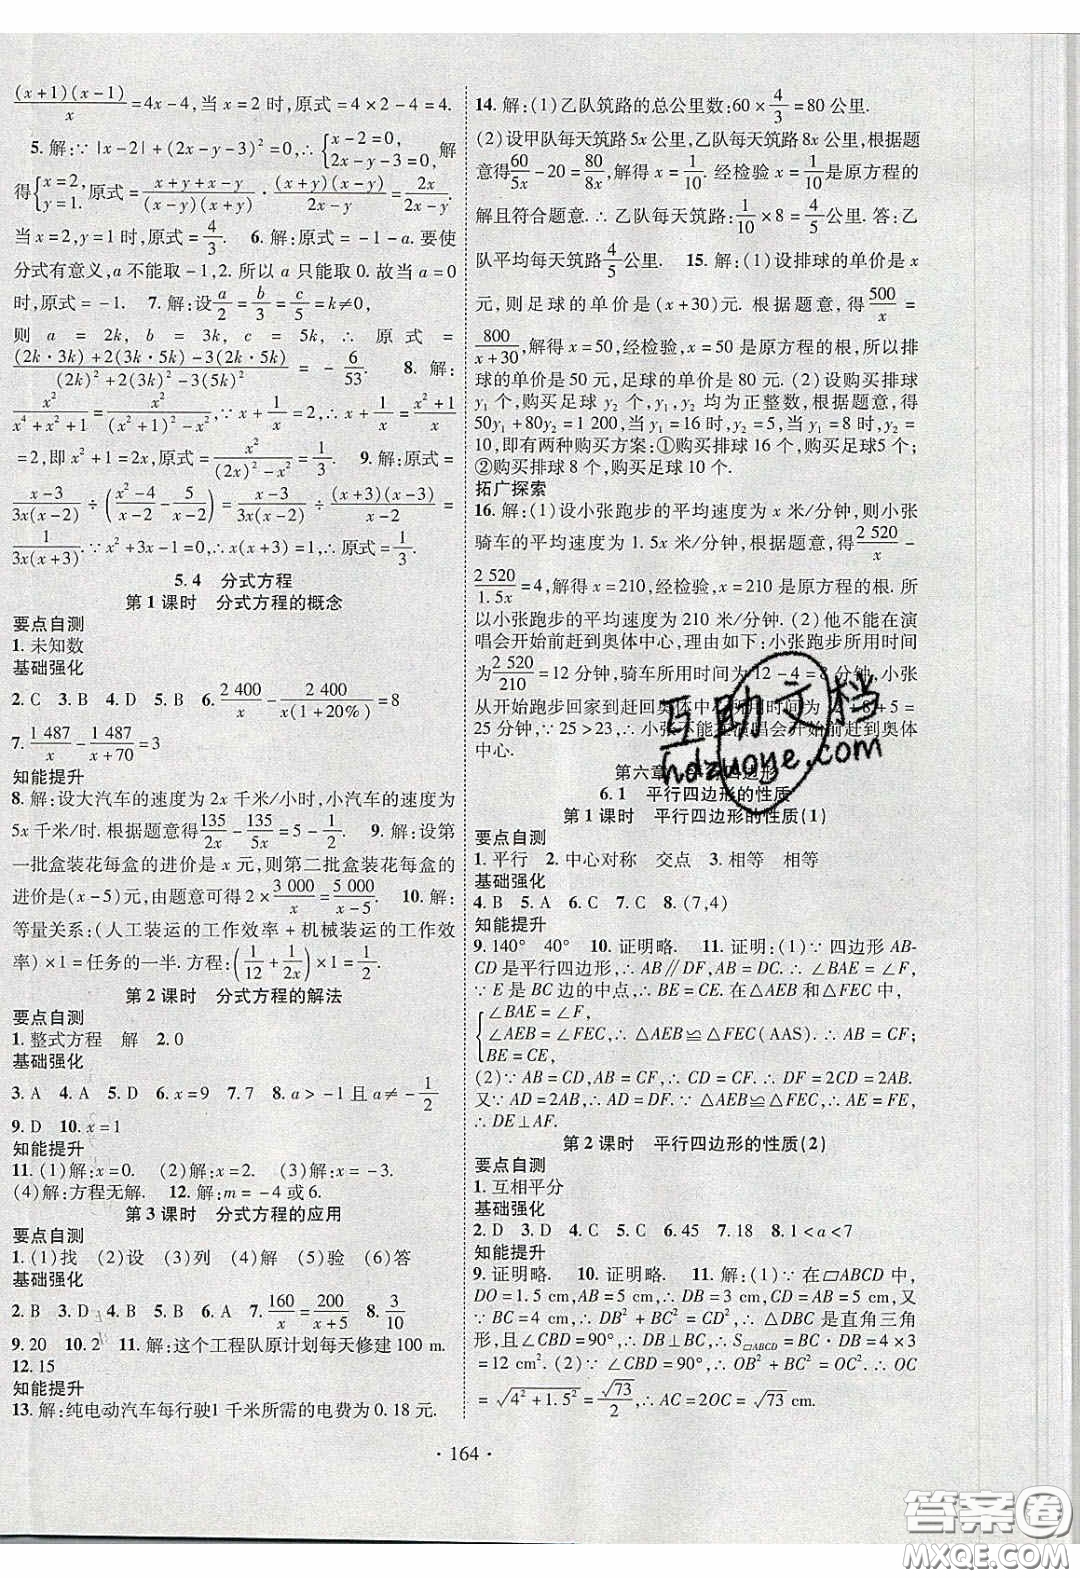 (x+1)(x-1)/x=4x-4,当 x=2 时,原式=4×2-4=4.
5. 解:∵|x-2|+(2x-y-3)²=0,∴{x-2=0, 2x-y-3=0, 解
得{x=2, y=1. 原式=(x+y+x-y)/((x-y)(x+y))·((x+y)(x-y))/(2x-y)=2x/(2x-y).
当 x=2,y=1 时,原式=4/3. 6. 解:原式=-1-a. 要使
分式有意义,a 不能取-1,2. 所以 a 只能取 0. 故当 a=0
时,原式=-1. 7. 解:设a/2=b/3=c/5=k≠0,
则 a = 2k, b = 3k, c = 5k, ∴ 原式 =
((2k·3k)+2(3k·5k)-3(2k·5k))/((2k)²+2(3k)²-3(5k)²) = -6/53. 8. 解:
x²/(x⁴+x²+1)=x²/((x²+1)²-x²),∵x+1/x=2,∴x+1/x=(x²+1)/x
=2,即 x²+1=2x.∴原式=x²/((2x)²-x²)=1/3. 9. 解:原式=
(x-3)/(3x(x-2))÷((x²-4)/(x-2)-5/(x-2))=(x-3)/(3x(x-2))÷((x+3)(x-3))/(x-2)=
1/(3x(x+3)).∵x²+3x-1=0,∴x(x+3)=1,∴原式=1/3.
5.4 分式方程
第 1 课时 分式方程的概念
要点自测
1. 未知数
基础强化
2. C 3. B 4. D 5. B 6. 2 400/x-2 400/(x(1+20%))=8
7. 1 487/x-1 487/(x+70)=3
知能提升
8. 解:设大汽车的速度为 2x 千米/小时,小汽车的速度为
5x千米/时. 根据题意得135/2x-135/5x=5-1/2. 9. 解:设第
一批盒装花每盒的进价是 x 元,则第二批盒装花每盒的
进价是(x-5)元,由题意可得 2×3 000/x=5 000/(x-5). 10. 解:
等量关系:(人工装运的工作效率+机械装运的工作效
率)×1=任务的一半. 方程:(1/12+1/2x)×1=1/2.
第 2 课时 分式方程的解法
要点自测
1. 整式方程 解 2. 0
基础强化
3. A 4. A 5. D 6. x=9 7. 7 8. a>-1且a≠-1/2
9. D 10. x=1
知能提升
11. (1)解:x=0. (2)解:x=2. (3)解:x=-3.
(4)解:方程无解. 12. 解:m=-4 或 6.
第 3 课时 分式方程的应用
要点自测
1. (1)找 (2)设 (3)列 (4)解 (5)验 (6)答
基础强化
2. B 3. D 4. B 5. B 6. A 7. 160/x=200/(x+5) 8. 3/10
9. 20 10. 2 11. 解:这个工程队原计划每天修建 100 m.
12. 15
知能提升
13. 解:纯电动汽车每行驶1 千米所需的电费为 0.18 元.
14. 解:(1)乙队筑路的总公里数:60×4/3=80 公里.
(2)设甲队每天筑路 5x 公里,乙队每天筑路 8x 公里,根据题
意得60/5x-20=80/8x,解得 x=1/10. 经检验 x=1/10是原方程的
解且符合题意.∴乙队每天筑路:1/10×8=4/5公里. 答:乙
队平均每天筑路4/5公里. 15. 解:(1)设排球的单价是 x
元,则足球的单价是(x+30)元. 根据题意,得500/x=
800/(x+30),解得 x=50,经检验,x=50 是原方程的根,所以排
球的单价是 50 元,足球的单价是 80 元. (2)设购买排球
y₁ 个,购买足球 y₂ 个,y₁,y₂ 均为正整数,根据题意,得
50y₁+80y₂=1 200,当 y₁=16 时,y₂=5,当 y₁=8 时,y₂=
10,即有两种购买方案:①购买排球 16 个,购买足球5 个;
②购买排球 8 个,购买足球 10 个.
拓广探索
16. 解:(1)设小张跑步的平均速度为 x 米/分钟,则小张
骑车的平均速度为 1.5x 米/分钟,根据题意,得2 520/x-
2 520/1.5x=4,解得 x=210,经检验,x=210 是原方程的根. 所
以小张跑步的平均速度为 210 米/分钟. (2)他不能在演
唱会开始前赶到奥体中心,理由如下:小张跑步所用时间
为2 520/210=12 分钟,骑车所用时间为 12-4=8 分钟,小张
从开始跑步回家到赶回奥体中心 +8+5=
25 分钟,∵25>23,∴小张不能在演唱会开始前赶到奥体
中心.
第六章 平行四边形
6.1 平行四边形的性质
第 1 课时 平行四边形的性质(1)
要点自测
1. 平行 2. 中心对称 交点 3. 相等 相等
基础强化
4. B 5. A 6. C 7. C 8. (7,4)
知能提升
9. 140° 40° 10. 证明略. 11. 证明:(1)∵四边形 AB-
CD 是平行四边形,∴AB∥DF,AB=DC.∴∠BAE=∠F,
∵E 是 BC 边的中点,∴BE=CE. 在△AEB和△FEC中,
{∠BAE=∠F,
∠AEB=∠FEC,∴△AEB≌△FEC(AAS).∴AB=CF;
BE=CE,
(2)∵AB=CD,AB=CF,∴CD=CF,∴DF=2CD=2AB.
又∵AD=2AB,∴AD=DF.∵△AEB≌△FEC,∴AE=FE,
∴DE⊥AF.
第 2 课时 平行四边形的性质(2)
要点自测
1. 互相平分
基础强化
2. D 3. D 4. C 5. C 6. 45 7. 18 8. 1<a<7
知能提升
9. 证明略. 10. 证明略. 11. 解:(1)∵在▱ABCD 中,
DO=1.5 cm,AB=5 cm,∴DB=3 cm,AB=CD=5 cm,
又∵BC=4 cm,∴DB²+BC²=CD²,∴△DBC 是直角三角
形,且∠CBD=90°,∴DB⊥BC,∴S▱ABCD=BC·DB=4×3
=12 cm²;(2)∵∠CBD=90°,∴OB²+BC²=OC²,∴OC
=√(4²+1.5²)=√73/2,∴AC=2OC=√73 cm.
· 164 ·
互助文档
hdzuoye.com
答案圈
MXQE.COM